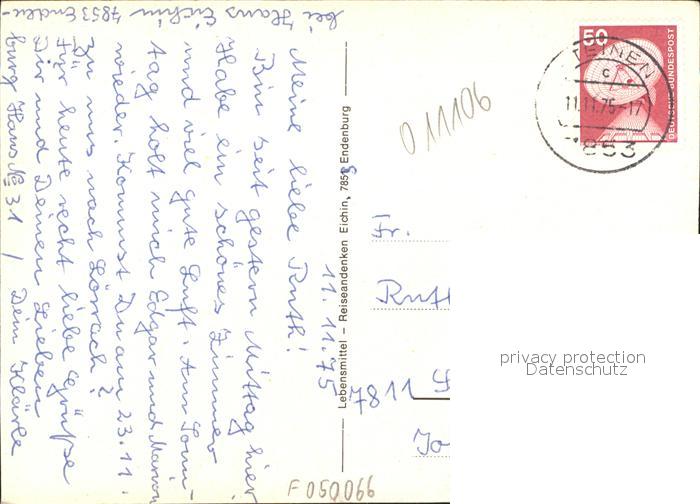 bei Hans Eichin 7853 Enden-
burg Haus No 31
11.11.75
Meine liebe Ruth!
Bin seit gestern Mittag hier
Habe ein schönes Zimmer
und viel gute Luft. Am Sonn-
tag holt mich Edgar und Marion
wieder. Kommst Du am 23.11.
zu uns nach Lörrach?
Für heute recht liebe Grüße
Dir und Deinen Lieben
Dein Klärle
Lebensmittel – Reiseandenken Eichin, 7853 Endenburg
50
DEUTSCHE BUNDESPOST
TEINEN
c
11.11.75-17
7853
011106
Fr.
Ruth
7811
privacy protection
Datenschutz
F 050066